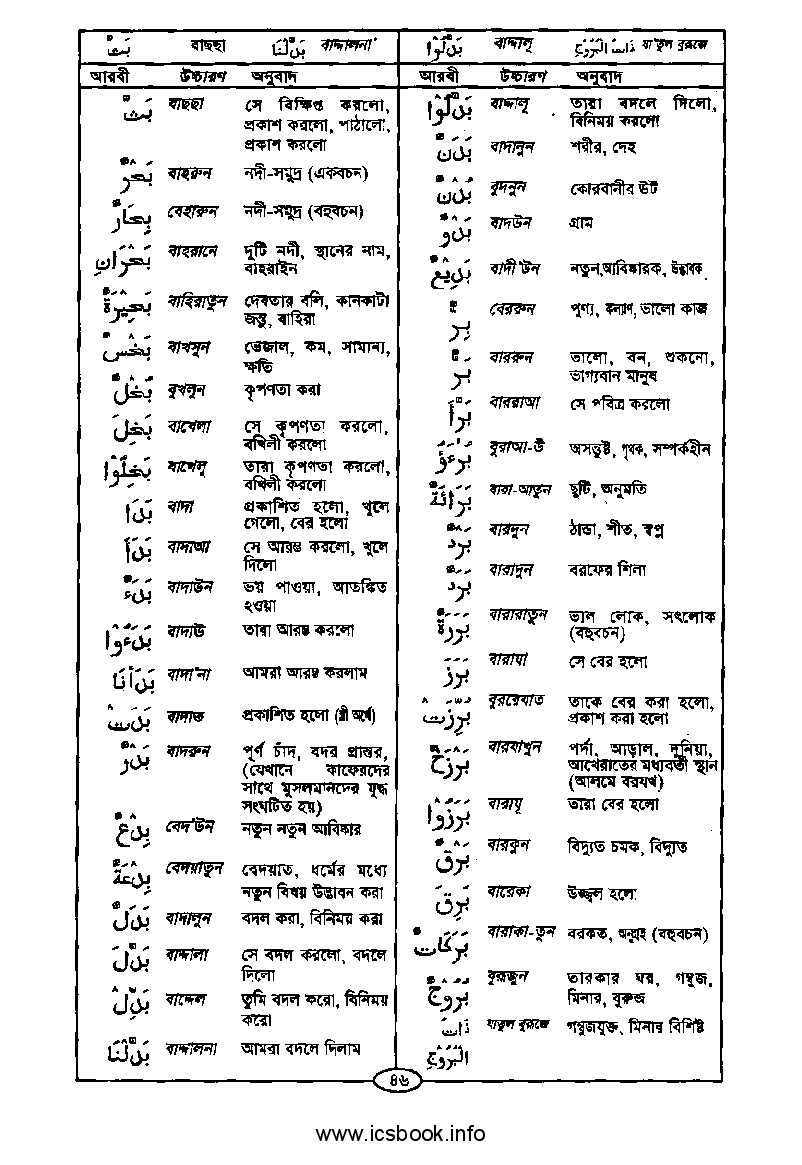 بَثَّ বাছছা بَدَّلْنَا বাদ্দালনা
আরবী উচ্চারণ অনুবাদ
بَثَّ বাছছা সে বিক্ষিপ্ত করলো,
প্রকাশ করলো, পাঠালো,
প্রকাশ করলো
بَحْرٌ বাহরুন নদী-সমুদ্র (একবচন)
بِحَارٌ বেহারুন নদী-সমুদ্র (বহুবচন)
بَحْرَانِ বাহরানে দুটি নদী, স্থানের নাম,
বাহরাইন
بَحِيْرَةٌ বাহিরাতুন দেবতার বলি, কানকাটা
জন্তু, বাহিরা
بَخْسٌ বাখসুন ভেজাল, কম, সামান্য,
ক্ষতি
بُخْلٌ বুখলুন কৃপণতা করা
بَخِلَ বাখেলা সে কৃপণতা করলো,
বখিলী করলো
بَخِلُوْا বাখেলু তারা কৃপণতা করলো,
বখিলী করলো
بَدَا বাদা প্রকাশিত হলো, খুলে
গেলো, বের হলো
بَدَأَ বাদাআ সে আরম্ভ করলো, খুলে
দিলো
بَدَءٌ বাদাউন ভয় পাওয়া, আতঙ্কিত
হওয়া
بَدَءُوْا বাদাউ তারা আরম্ভ করলো
بَدَأْنَا বাদা'না আমরা আরম্ভ করলাম
بَدَتْ বাদাত প্রকাশিত হলো (স্ত্রী অর্থে)
بَدْرٌ বাদরুন পূর্ণ চাঁদ, বদর প্রান্তর,
(যেখানে কাফেরদের
সাথে মুসলমানদের যুদ্ধ
সংঘটিত হয়)
بِدْعٌ বেদ'উন নতুন নতুন আবিষ্কার
بِدْعَةٌ বেদয়াতুন বেদয়াত, ধর্মের মধ্যে
নতুন বিষয় উদ্ভাবন করা
بَدَلٌ বাদালুন বদল করা, বিনিময় করা
بَدَّلَ বাদ্দালা সে বদল করলো, বদলে
দিলো
بَدِّلْ বাদ্দেল তুমি বদল করো, বিনিময়
করো
بَدَّلْنَا বাদ্দালনা আমরা বদলে দিলাম
بَدَّلُوْا বাদ্দালূ ذَاتُ الْبُرُوْجِ যা'তুল বুরুজে
আরবী উচ্চারণ অনুবাদ
بَدَّلُوْا বাদ্দালূ তারা বদলে দিলো,
বিনিময় করলো
بَدَنٌ বাদানুন শরীর, দেহ
بُدْنٌ বুদনুন কোরবানীর উট
بَدْوٌ বাদউন গ্রাম
بَدِيْعٌ বাদী'উন নতুন,আবিষ্কারক, উদ্ভাবক
بِرٌّ বেররুন পুণ্য, কল্যাণ, ভালো কাজ
بَرٌّ বাররুন ভালো, বন, শুকনো,
ভাগ্যবান মানুষ
بَرَّأَ বাররাআ সে পবিত্র করলো
بُرَءٰؤُ বুরাআ-উ অসন্তুষ্ট, পৃথক, সম্পর্কহীন
بَرَائَةٌ বারা-আতুন ছুটি, অনুমতি
بَرْدٌ বারদুন ঠান্ডা, শীত, স্বপ্ন
بَرَدٌ বারাদুন বরফের শিলা
بَرَرَةٌ বারারাতুন ভাল লোক, সৎলোক
(বহুবচন)
بَرَزَ বারাযা সে বের হলো
بُرِّزَتْ বুররেযাত তাকে বের করা হলো,
প্রকাশ করা হলো
بَرْزَخٌ বারযাখুন পর্দা, আড়াল, দুনিয়া,
আখেরাতের মধ্যবর্তী স্থান
(আলমে বরযখ)
بَرَزُوْا বারাযূ তারা বের হলো
بَرْقٌ বারকুন বিদ্যুত চমক, বিদ্যুত
بَرِقَ বারেকা উজ্জ্বল হলো
بَرَكَاتٌ বারাকা-তুন বরকত, অনুগ্রহ (বহুবচন)
بُرُوْجٌ বুরূজুন তারকার ঘর, গম্বুজ,
মিনার, বুরুজ
ذَاتُ যাতুল বুরুজে গম্বুজযুক্ত, মিনার বিশিষ্ট
الْبُرُوْجِ
৪৬
www.icsbook.info